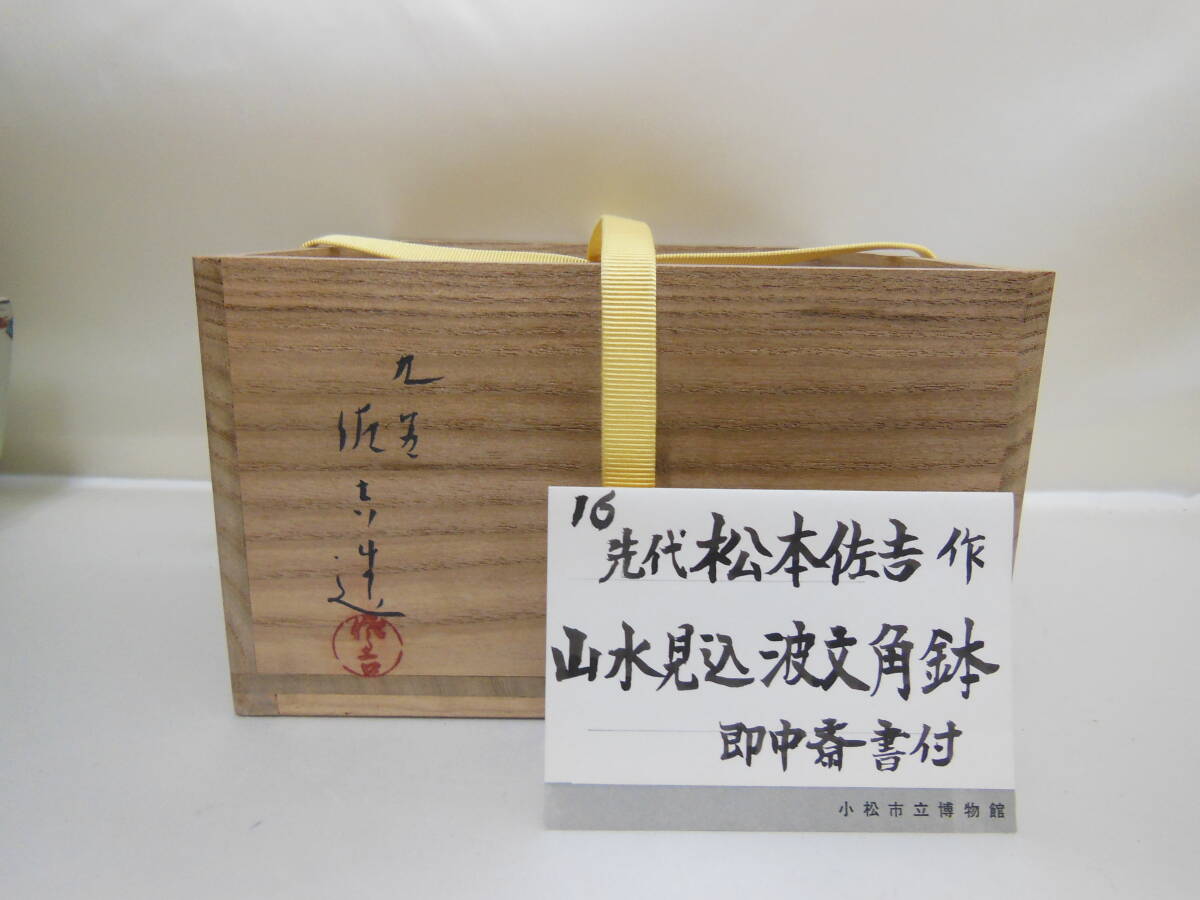 九谷
佐吉造
佐吉
16
先代松本佐吉作
山水見込波文角鉢
即中斎書付
小松市立博物館